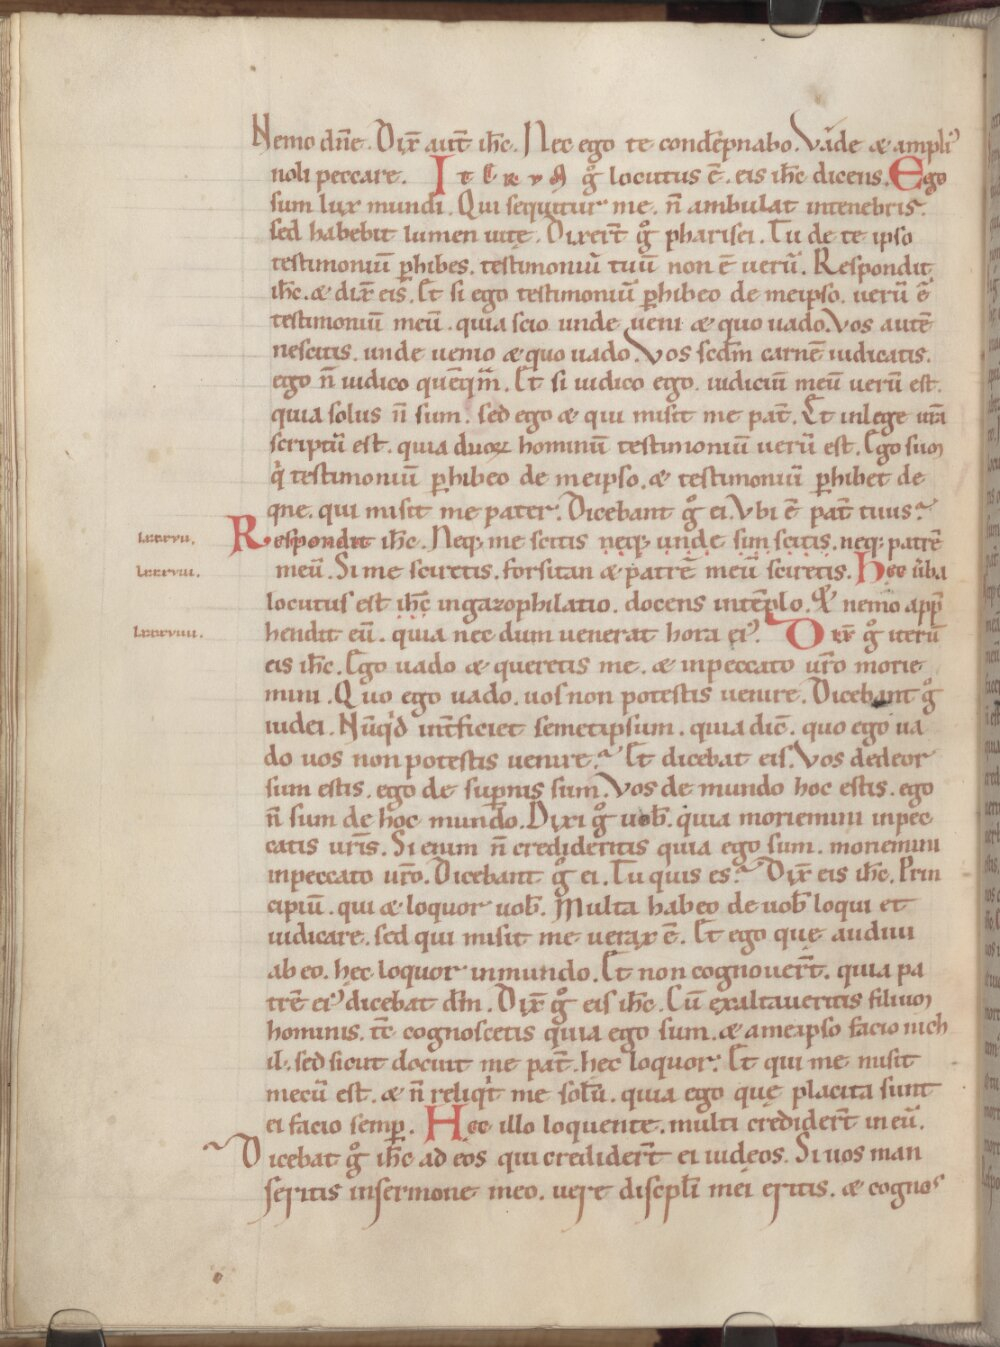 Nemo dn̄e. Dix̄ aut̄ ih̄c. Nec ego te condēpnabo. Vade & ampli᾿
noli peccare. ITERVM g̊ locutus ē. eis ih̄c dicens. Ego
sum lux mundi. Qui sequitur me. n̄ ambulat intenebris.
sed habebit lumen uitę. Dixer̄t g̊ pharisei. Tu de te ipso
testimoniū p̄hibes. testimoniū tuū non ē uerū. Respondit
ih̄c. & dix̄ eis. Et si ego testimoniū p̄hibeo de meipso. uerū ē
testimoniū meū. quia scio unde ueni & quo uado. Vos autē
nescitis. unde uenio & quo uado. Vos scd̄m carnē iudicatis.
ego n̄ iudico quēqm̄. Et si iudico ego. iudiciū meū uerū est.
quia solus n̄ sum. sed ego & qui misit me pat̄. Et inlege ur̄a
scriptū est. quia duoꝝ hominū testimoniū uerū est. Ego sum
q̇ testimoniū p̄hibeo de meipso. & testimoniū p̄hibet de
qne. qui misit me pater. Dicebant g̊ ei. Vbi ē pat̄ tuus?
lxxxvii. Respondit ih̄c. Neq; me scitis neq; unde sim scitis. neq; patrē
lxxxviii. meū. Si me sciretis. forsitan & patrē meū sciretis. Hęc ūba
locutus est ih̄c ingazophilatio. docens intēplo. & nemo app̄
lxxxviiii. hendit eū. quia nec dum uenerat hora ei᾿. Dix̄ g̊ iterū
eis ih̄c. Ego uado & queretis me. & inpeccato ur̄o morie
mini. Quo ego uado. uos non potestis uenire. Dicebant g̊
iudei. Nūqd̄ int̄ficiet semetipsum. quia dic̄. quo ego ua
do uos non potestis uenire? Et dicebat eis. Vos dedeor
sum estis. ego de sup̄nis sum. Vos de mundo hoc estis. ego
n̄ sum de hoc mundo. Dixi g̊ uob̄. quia moriemini inpec
catis ur̄is. Si enim n̄ credideritis quia ego sum. moriemini
inpeccato ur̄o. Dicebant g̊ ei. Tu quis es? Dix̄ eis ih̄c. Prin
cipiū. qui & loquor uob̄. Multa habeo de uob̄ loqui et
iudicare. sed qui misit me uerax ē. Et ego quę audiui
ab eo. hęc loquor inmundo. Et non cognouer̄t. quia pa
trē ei᾿ dicebat dm̄. Dix̄ g̊ eis ih̄c. Cū exaltaueritis filium
hominis. tc̄ cognoscetis quia ego sum. & ameipso facio nich
il. sed sicut docuit me pat̄. hęc loquor. Et qui me misit
mecū est. & n̄ reliqt̄ me solū. quia ego quę placita sunt
ei facio semp̄. Hęc illo loquente. multi credider̄t in eū.
Dicebat g̊ ih̄c ad eos qui credider̄t ei iudeos. Si uos man
seritis insermone meo. uere discipl̄i mei eritis. & cognos